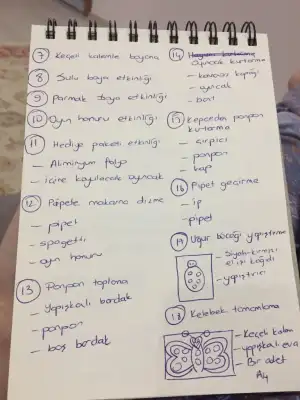 7 Keçeli kalemle boyama
8 Sulu boya etkinliği
9 Parmak boya etkinliği
10 Oyun hamuru etkinliği
11 Hediye paketi etkinliği
- Aliminyum folyo
- içine koyulacak oyuncak
12 Pipete makarna dizme
- pipet
- spagetti
- oyn hamuru
13 Ponpon toplama
- Yapışkalı bardak
- ponpon
- boş bardak
14
Oyuncak kurtarma
- kavanoz kapağı
- oyuncak
- bant
15 Kepçeden ponpon
kurtarma
- çırpıcı
- ponpon
- kap
16 Pipet geçirme
- ip
- pipet
17 Uğur böceği yapıştırma
- Siyah-kırmızı
el işi kağıdı
- yapıştırıcı
18 Kelebek tamamlama
- Keçeli kalem
- yapışkalı eva
- Bir adet
A4